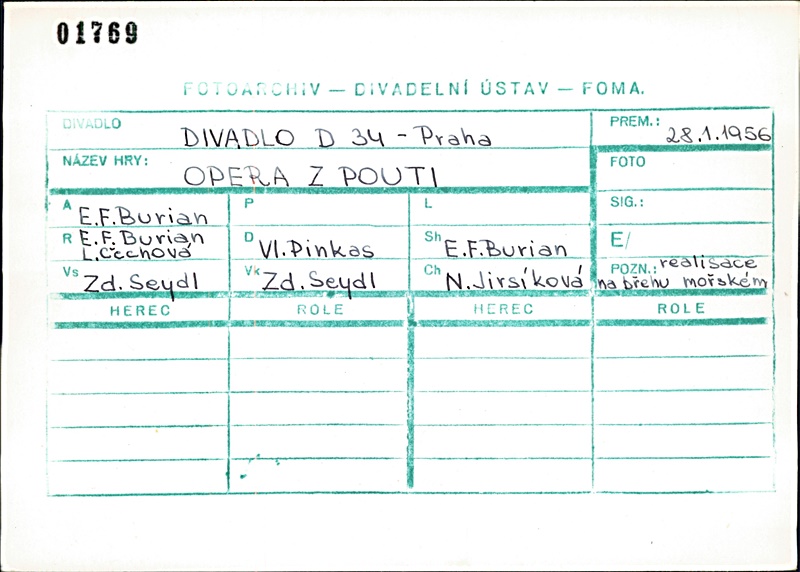 01769
FOTOARCHIV — DIVADELNÍ ÚSTAV — FOMA.
DIVADLO DIVADLO D 34 - Praha PREM.: 28.1.1956
NÁZEV HRY: OPERA Z POUTI FOTO
A E.F.Burian P L SIG.:
R E.F. Burian
L.Čechová D Vl.Pinkas Sh E.F.Burian E/
Vs Zd.Seydl Vk Zd.Seydl Ch N.Jirsíková POZN.: realisace
na břehu mořském
HEREC ROLE HEREC ROLE